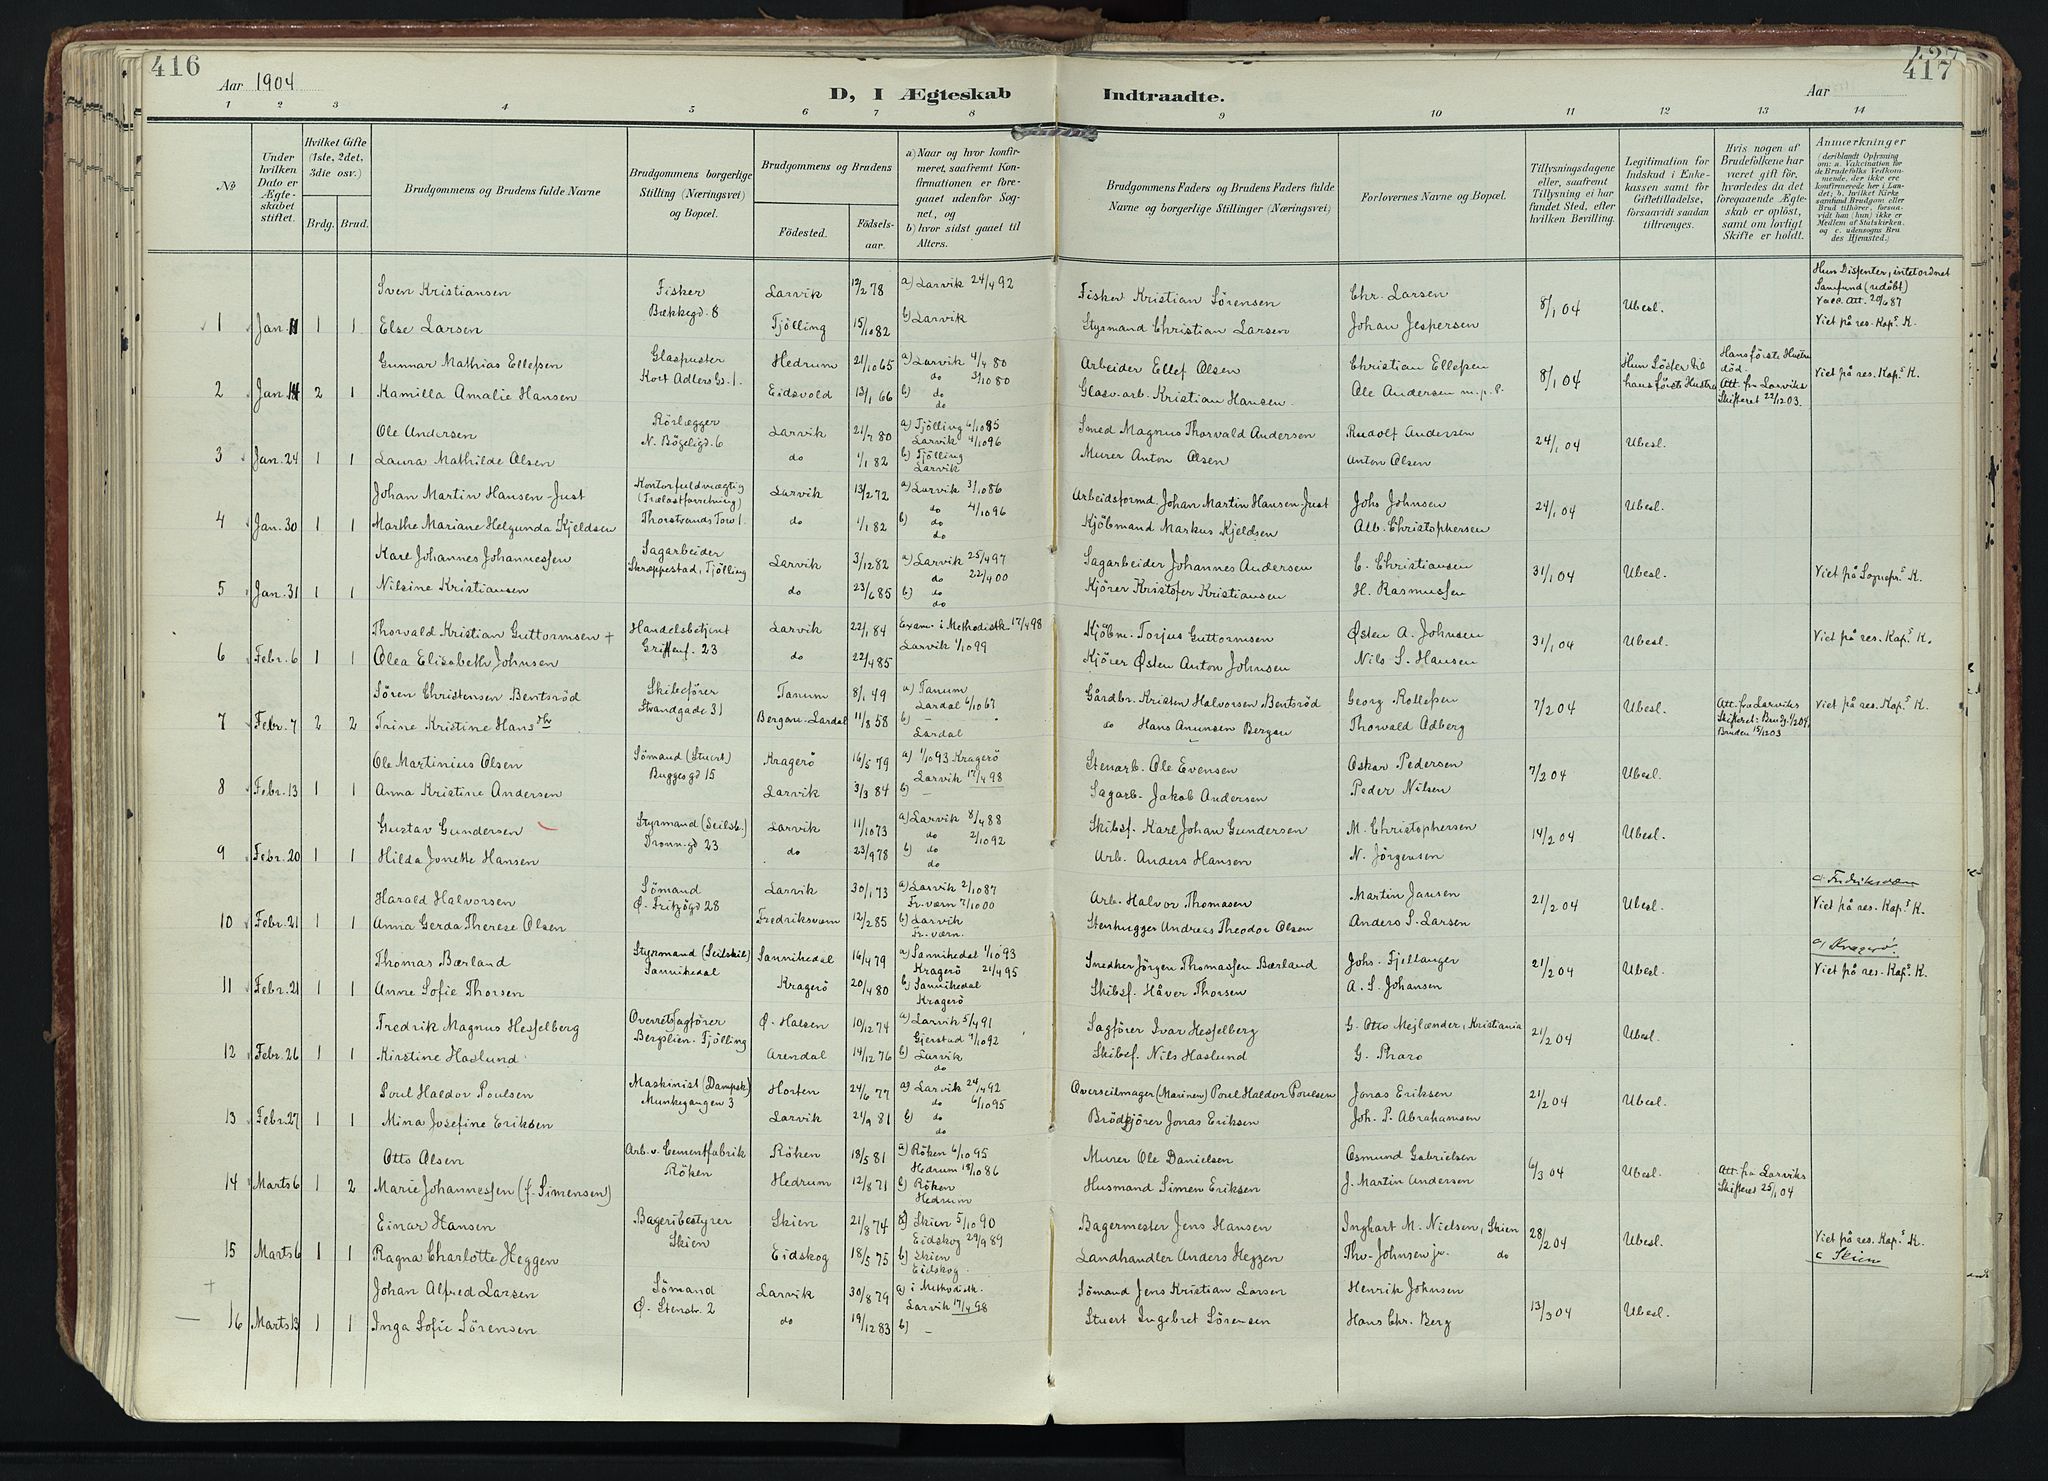 416
Aar 1904
D, I Ægteskab Indtraadte.
427
417
Aar
1 2 3 4 5 6 7 8 9 10 11 12 13 14
No
Under hvilken Dato er Ægteskabet stiftet.
Hvilket Gifte (1ste, 2det, 3die osv.)
Brdg. Brud.
Brudgommens og Brudens fulde Navne
Brudgommens borgerlige Stilling (Næringsvei) og Bopæl.
Brudgommens og Brudens
Fødested.
Fødselsaar.
a) Naar og hvor konfirmeret, saafremt Konfirmationen er foregaaet udenfor Sognet, og
b) hvor sidst gaaet til Alters.
Brudgommens Faders og Brudens Faders fulde Navne og borgerlige Stillinger (Næringsvei)
Forlovernes Navne og Bopæl.
Tillysningsdagene eller, saafremt Tillysning ei har fundet Sted, efter hvilken Bevilling.
Legitimation for Indskud i Enkekassen samt for Giftetilladelse, forsaavidt saadan tiltrænges.
Hvis nogen af Brudefolkene har været gift før, hvorledes da det foregaaende Ægteskab er opløst, samt om lovligt Skifte er holdt.
Anmærkninger
(deriblandt Oplysning om: a. Vakcination for de Brudefolks Vedkommende, der ikke ere konfirmerede her i Landet; b. hvilket Kirkesamfund Brudgom eller Brud tilhører, forsaavidt han (hun) ikke er Medlem af Statskirken, og c. udensogns Brudes Hjemsted.)
Sven Kristiansen Fisker Larvik 12/2 78 a) Larvik 24/4 92 Fisker Kristian Sörensen Chr. Larsen 8/1 04 Ubesl. Hun Dissenter, intet ordnet Samfund (udöbt) Vacc. Att. 20/6 87
1 Jan. 11 1 1 Else Larsen Bækkegd. 8 Tjölling 15/10 82 b) Larvik Styrmand Christian Larsen Johan Jespersen Viet på res. Kap.s K.
Gunnar Mathias Ellefsen Glaspuster Hedrum 21/10 65 a) Larvik 4/4 80 do 3/10 80 Arbeider Ellef Olsen Christian Ellefsen 8/1 04 Hun Söster til hans förste Hustru Hans förste Hustru död.
2 Jan. 14 2 1 Kamilla Amalie Hansen Kort Adlers G. 1. Eidsvold 13/1 66 b) do do Glasv.arb. Kristian Hansen Ole Andersen m.p.P. Att. fra Larviks Skifteret 22/12 03. Viet på res. Kap.s K.
Ole Andersen Rörlægger Larvik 21/7 80 a) Tjölling 6/10 85 Larvik 4/10 96 Smed Magnus Thorvald Andersen Rudolf Andersen 24/1 04 Ubesl.
3 Jan. 24 1 1 Laura Mathilde Olsen N. Bögeligd. 6 do 1/1 82 b) Tjölling Larvik Murer Anton Olsen Anton Olsen
Johan Martin Hansen-Just Kontorfuldmægtig (Trælastforretning) Larvik 13/2 72 a) Larvik 3/10 86 do 4/10 96 Arbeidsformd. Johan Martin Hansen Just Johs Johnsen 24/1 04 Ubesl.
4 Jan. 30 1 1 Marthe Mariane Helgunda Kjeldsen Thorstrands Torv 1. do 1/1 82 b) do do Kjöbmand Markus Kjeldsen Alb. Christophersen
Karl Johannes Johannessen Sagarbeider Larvik 3/12 82 a) Larvik 25/4 97 do 22/4 00 Sagarbeider Johannes Andersen C. Christiansen 31/1 04 Ubesl. Viet på Sognepr.s K.
5 Jan. 31 1 1 Nilsine Kristiansen Skreppestad, Tjölling do 23/6 85 b) do do Kjörer Kristofer Kristiansen H. Rasmussen
Thorvald Kristian Guttormsen + Handelsbetjent Larvik 22/1 84 Exam. i Methodistk. 17/4 98 Kjöbm. Torjus Guttormsen Østen A. Johnsen 31/1 04 Ubesl. Viet på res. Kap.s K.
6 Febr. 6 1 1 Olea Elisabeth Johnsen 23 do 22/4 85 Larvik 1/10 99 Kjörer Østen Anton Johnsen Nils S. Hansen
Sören Christensen Bentsröd Skibsförer Tanum 8/1 49 a) Tanum Lardal 6/10 67 Gårdbr. Kristen Halvorsen Bentsröd Georg Rollefsen 7/2 04 Ubesl. Att. fra Larviks Skifteret: Brudg. Viet på res. Kap.s K.
7 Febr. 7 2 2 Trine Kristine Hansdtr Strandgade 31 Bergan-Lardal 11/8 58 b) – Lardal do Hans Anunsen Bergan Thorvald Adberg Bruden 15/12 03
Ole Martinius Olsen Sömand (Stuert) Kragerö 16/5 79 a) 1/10 93 Kragerö Larvik 17/4 98 Stenarb. Ole Evensen Oskar Pedersen 7/2 04 Ubesl.
8 Febr. 13 1 1 Anna Kristine Andersen Bugges gd 15 Larvik 3/3 84 b) – Sagarb. Jakob Andersen Peder Nilsen
Gustav Gundersen Styrmand (Seilsk.) Larvik 11/10 73 a) Larvik 8/4 88 do 2/10 92 Skibsf. Karl Johan Gundersen M. Christophersen 14/2 04 Ubesl.
9 Febr. 20 1 1 Hilda Jonette Hansen Dronn.gd 23 do 23/9 78 b) do do Arb. Anders Hansen N. Jörgensen
Harald Halvorsen Sömand Larvik 30/1 73 a) Larvik 2/10 87 Fr.værn 7/10 00 Arb. Halvor Thomasen Martin Jansen 21/2 04 Ubesl. c. Fredriksværn
10 Febr. 21 1 1 Anna Gerda Therese Olsen Ø. Fritzögd 28 Fredriksværn 12/2 85 b) Larvik Fr.værn. Stenhugger Andreas Theodor Olsen Anders S. Larsen Viet på res. Kap.s K.
Thomas Bærland Styrmand (Seilskib) Sannikedal 16/4 79 a) Sannikedal 1/10 93 Kragerö 21/4 95 Snedker Jörgen Thomassen Bærland Johs. Fjellanger 21/2 04 Ubesl. c) Kragerö
11 Febr. 21 1 1 Anne Sofie Thorsen Sannikedal Kragerö 20/4 80 b) Sannikedal Kragerö Skibsf. Håver Thorsen A. S. Johansen Viet på res. Kap.s K.
Fredrik Magnus Hesselberg Overretssagförer Ø. Halsen 10/12 74 a) Larvik 5/4 91 Gjerstad 9/10 92 Sagförer Ivar Hesselberg G. Otto Mejlænder, Kristiania 21/2 04 Ubesl.
12 Febr. 26 1 1 Kirstine Haslund Tjölling Arendal 14/12 76 b) Larvik do Skibsf. Nils Haslund G. Pharo
Poul Haldor Poulsen Maskinist (Dampsk.) Horten 24/6 77 a) Larvik 24/4 92 do 6/10 95 Overseilmager (Marinen) Poul Haldor Poulsen Jonas Eriksen 21/2 04 Ubesl.
13 Febr. 27 1 1 Mina Josefine Eriksen Munkegangen 3 Larvik 21/9 81 b) do do Brödkjörer Jonas Eriksen Joh. P. Abrahamsen
Otto Olsen Arb. v. Cementfabrik Röken 18/5 81 a) Röken 6/10 95 Hedrum 18/10 86 Murer Ole Danielsen Osmund Gabrielsen 6/3 04 Ubesl. Att. fra Larviks Skifteret 25/1 04
14 Marts 6 1 2 Marie Johannessen (f. Simensen) Röken Hedrum 12/8 71 b) Röken Hedrum Husmand Simen Eriksen J. Martin Andersen
Einar Hansen Bageribestyrer Skien 21/8 74 a) Skien 5/10 90 Eidskog 29/9 89 Bagermester Jens Hansen Inghart M. Nielsen, Skien 28/2 04 Ubesl. Viet på res. Kap.s K.
15 Marts 6 1 1 Ragna Charlotte Heggen Skien Eidskog 18/5 75 b) Skien Eidskog. Landhandler Anders Heggen Thv. Johnsen jr. do c Skien
+ Johan Alfred Larsen Sömand Larvik 30/8 79 a) i Methodistk. Larvik 17/4 98 Sömand Jens Kristian Larsen Henrik Johnsen 13/3 04 Ubesl.
16 Marts 13 1 1 Inga Sofie Sörensen Ø. Stenstr. 2 do 19/12 83 b) – Stuert Ingebret Sörensen Hans Chr. Berg